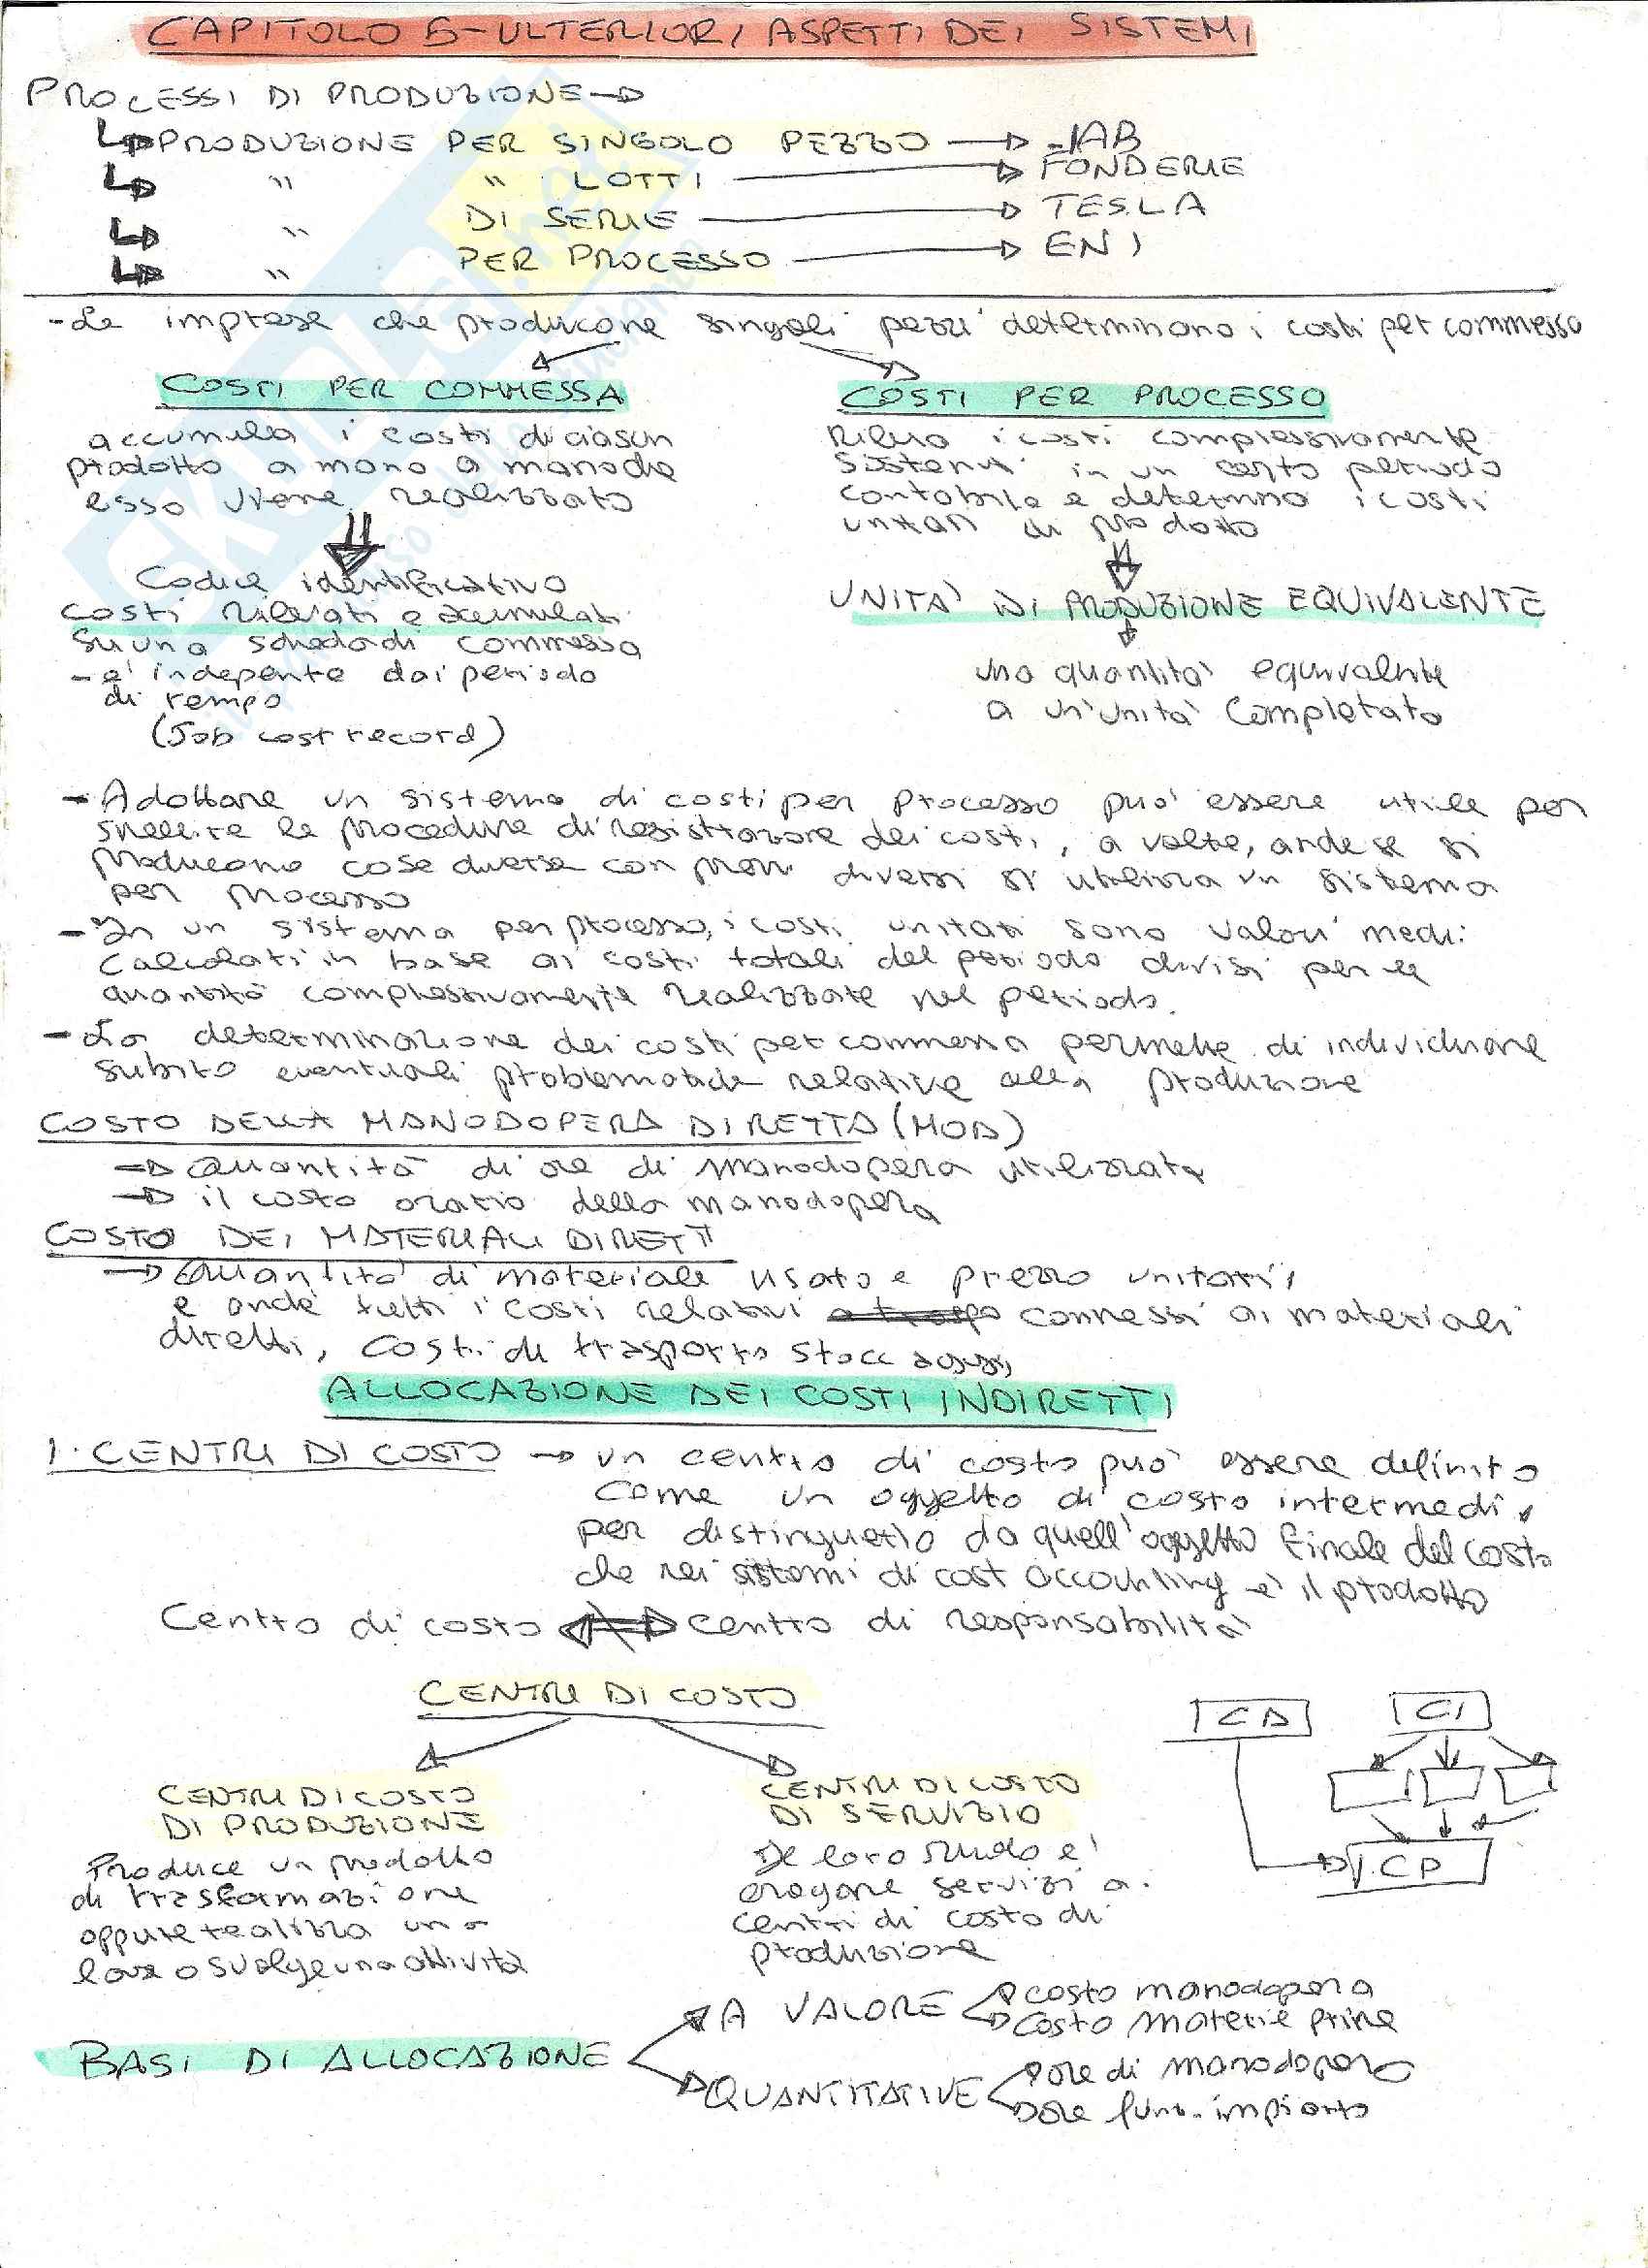 CAPITOLO 5 - ULTERIORI ASPETTI DEI SISTEMI
PROCESSI DI PRODUZIONE →
PRODUZIONE PER SINGOLO PEZZO → JAB
" " LOTTI → FONDERIE
" DI SERIE → TESLA
" PER PROCESSO → ENI
- Le imprese che producone singoli pezzi determinano i costi per commessa
COSTI PER COMMESSA
accumula i costi di ciasun
prodotto a mano a mano che
esso viene realizzato
Codice identificativo
costi rilevati e accumulati
su una scheda di commessa
- e' indepente dai periodo
di tempo
(Job cost record)
COSTI PER PROCESSO
Rileva i costi complessivamente
in un certo periodo
contabile e determina i costi
unitari di prodotto
UNITA' DI PRODUZIONE EQUIVALENTE
una quantita' equivalente
a un'unita' completata
- Adottare un sistema di costi per processo puo' essere utile per
snellire le procedure di registrazione dei costi, a volte, anche se si
producono cose diverse con prezzi diversi si utilizza un sistema
per processo
- In un sistema per processo, i costi unitari sono valori medi:
calcolati in base ai costi totali del periodo divisi per le
quantità complessivamente realizzate nel periodo.
- La determinazione dei costi per commessa permette di individuare
subito eventuali problematiche relative alla produzione
COSTO DELLA MANODOPERA DIRETTA (MOD)
→ Quantità di ore di manodopera utilizzata
→ il costo orario della manodopera
COSTO DEI MATERIALI DIRETTI
→ Quantita' di materiale usato e prezzo unitari,
e anche tutti i costi relativi connessi ai materiali
diretti, costi di trasporto stoccaggi,
ALLOCAZIONE DEI COSTI INDIRETTI
1. CENTRI DI COSTO → un centro di costo puo' essere definito
come un oggetto di costo intermedi,
per distinguerlo da quell'oggetto finale del costo
che nei sistemi di cost accounting e' il prodotto
Centro di costo centro di responsabilita'
CENTRI DI COSTO
CD
CI
CENTRI DI COSTO
DI PRODUZIONE
Produce un prodotto
di trasformazione
oppure realizza una
fase o svolge una attività
CENTRI DI COSTO
DI SERVIZIO
De loro ruolo e'
erogare servizi a
centri di costo di
produzione
CP
BASI DI ALLOCAZIONE
A VALORE
costo manodopera
costo materie prime
QUANTITATIVE
ore di manodopera
ore funz. impianto